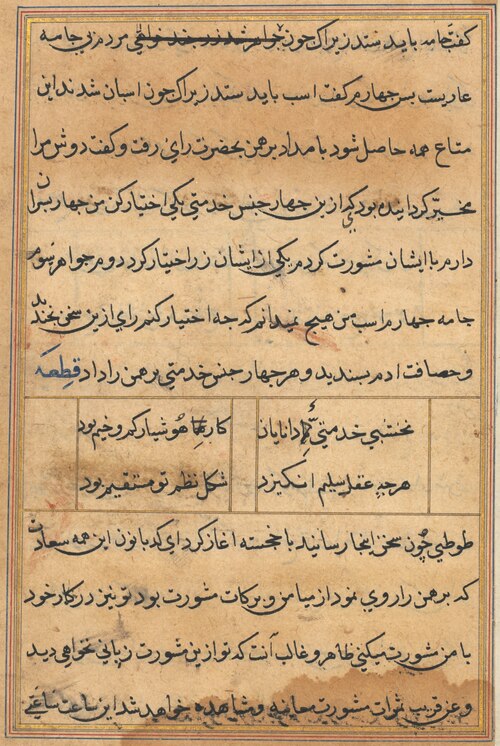 گفت جامه باید ستد زیراک چون جواهر شد زر بند نوائی مردم بی جامه
عاریست پس چهارم گفت اسب باید ستد زیراک چون اسبان شدند این
متاع همه حاصل شود بامداد برهمن بحضرت رای رفت و گفت دوش مرا
مخیر گردانیده بود که ازین چهار جنس خدمتی یکی اختیار کن من چهار پسران
دارم با ایشان مشورت کردم یکی از ایشان زر اختیار کرد دوم جواهر سوم
جامه چهارم اسب من هیچ نمیدانم که چه اختیار کنم رای ازین سخن بخندید
و حصافت ادم بسندید و هر چهار جنس خدمتی برهمن را داد قطعه
نخشبی خدمتی دانایان
کارها هوشیار کرو خیم بود
هرچه عقل سلیم انگیزد
شکل نظم تو مستقیم بود
طوطی چون سخن اینجا رسانید با خجسته اغاز کرد ای کدبانون این همه سعادت
که برهمن را روی نمود از میامن و برکات مشورت بود تو نیز در کار خود
با من مشورت میکنی ظاهر و غالب آنست که تو ازین مشورت زیانی نخواهی دید
و عن قریب ثمرات مشورت معاینه و مشاهده خواهد شد این ساعت ساعتی